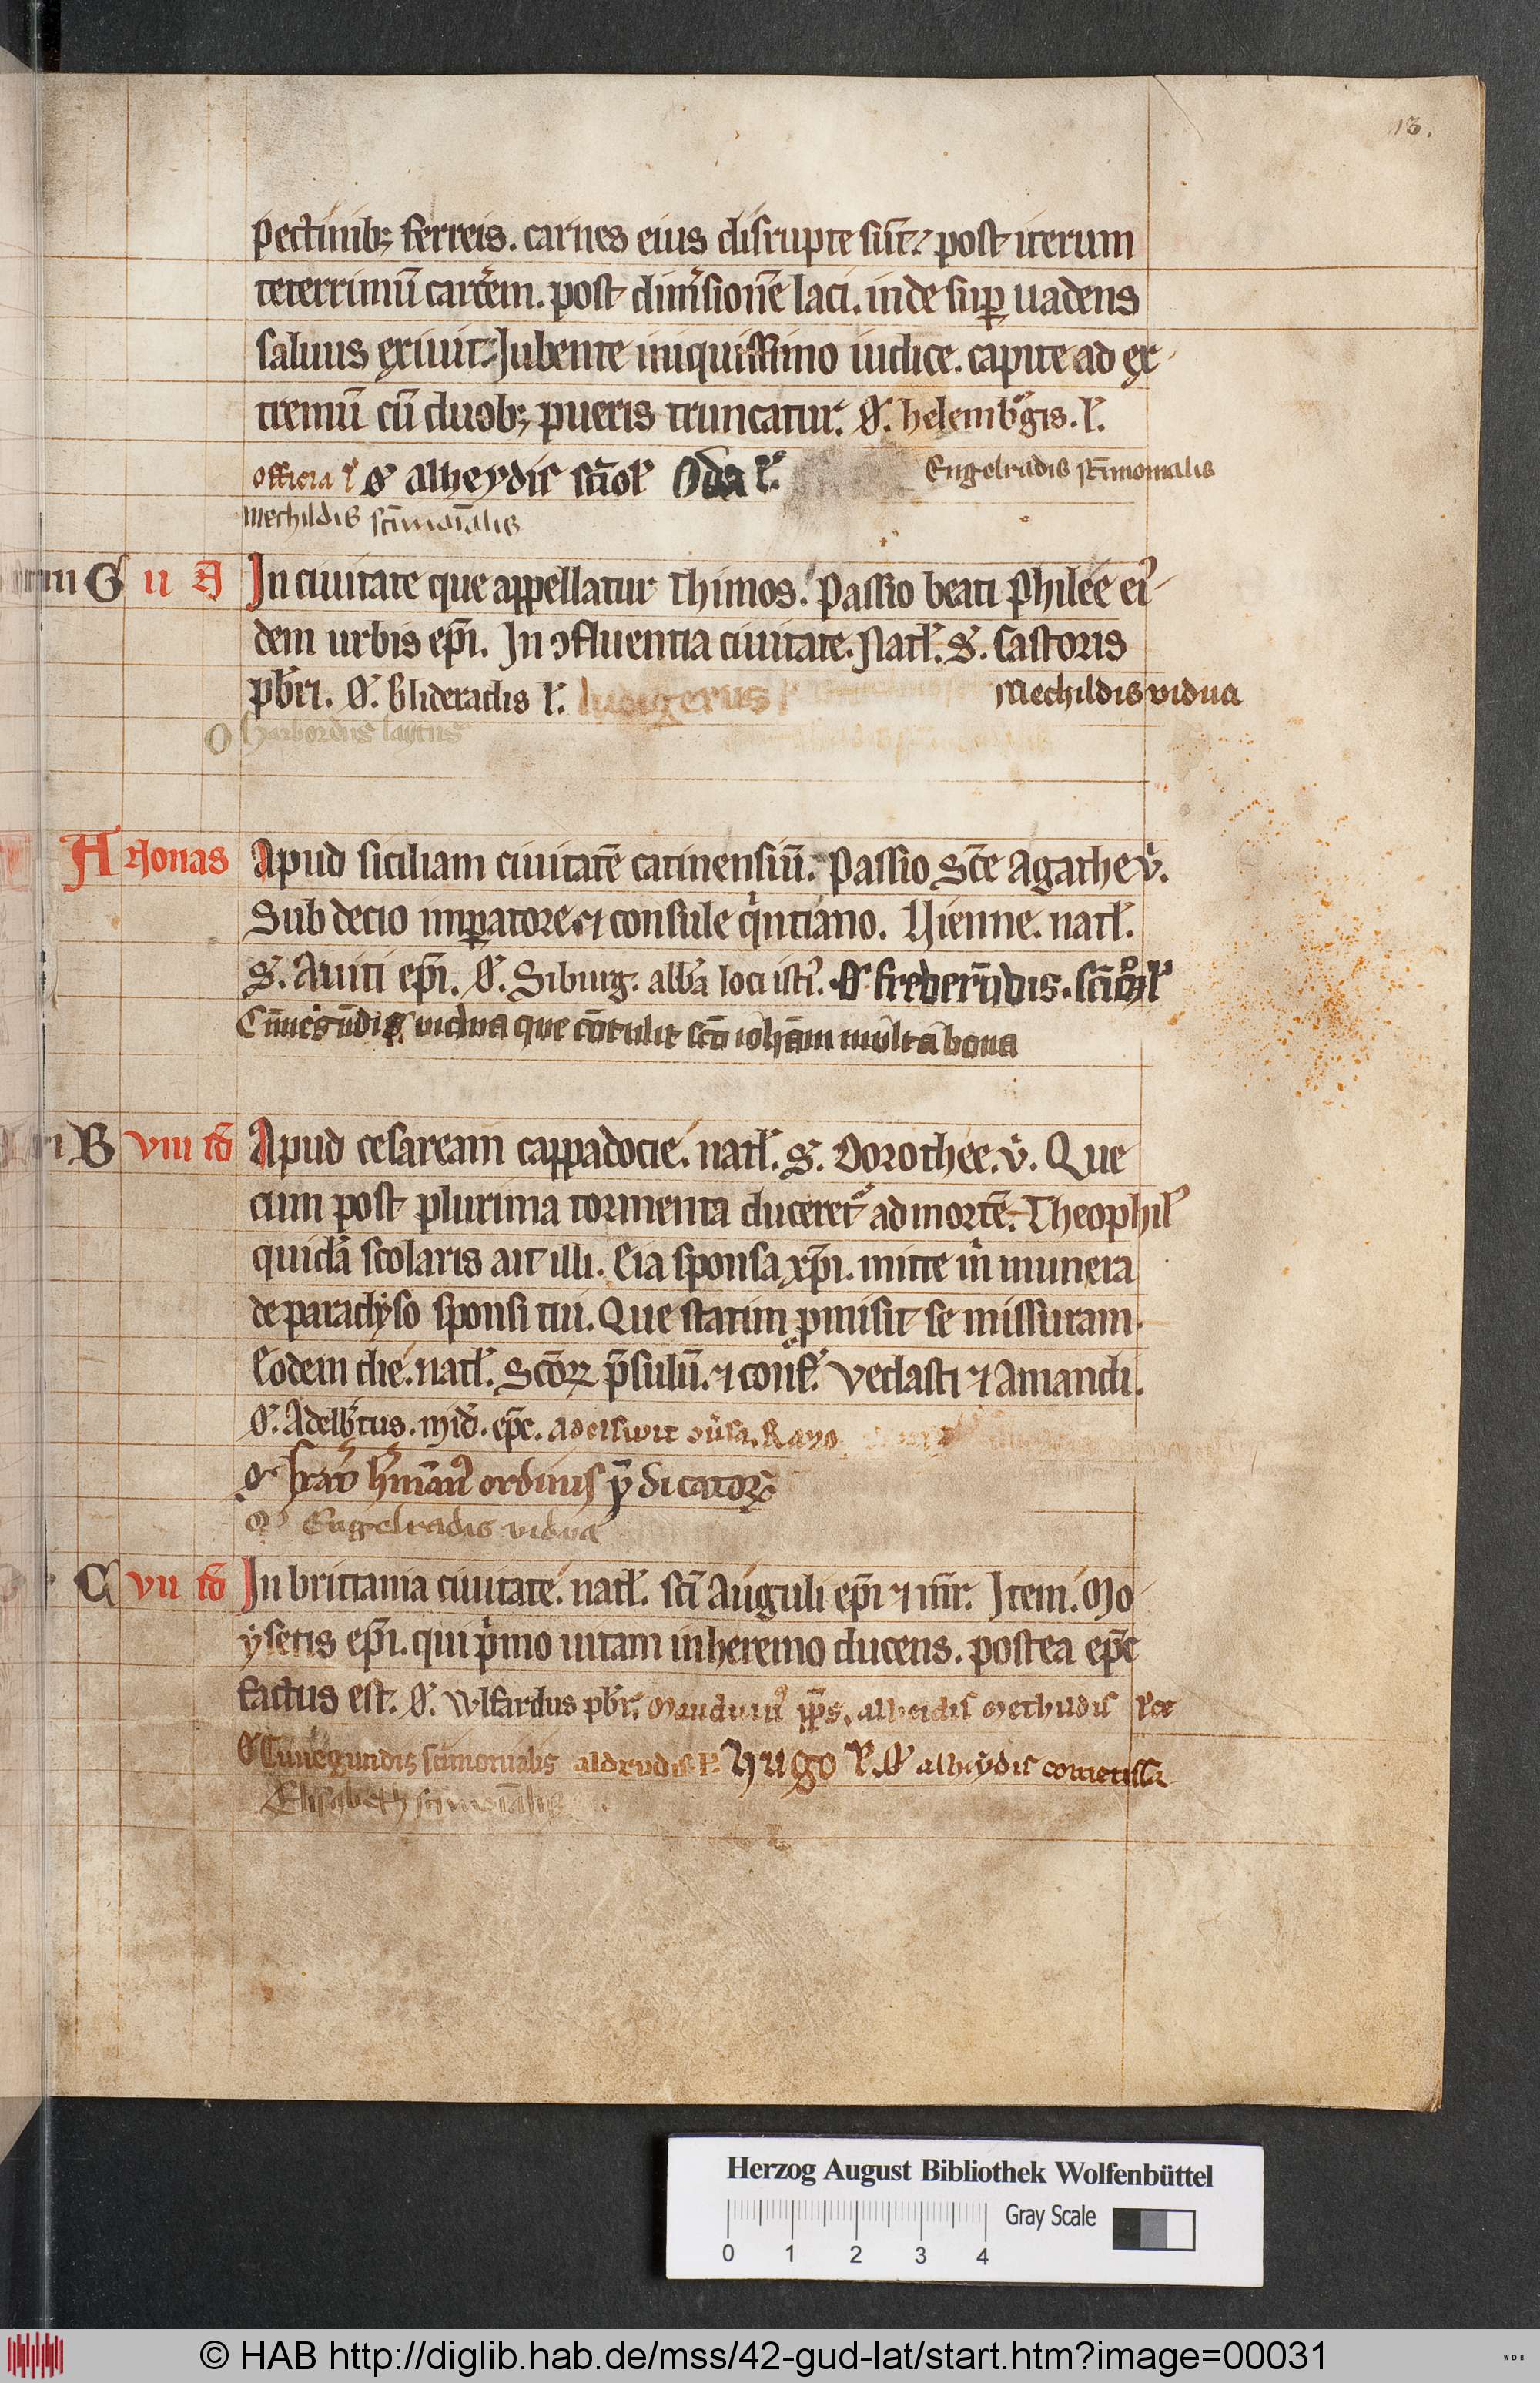 13.
pectinibꝫ ferreis. carnes eius disrupte sūt. post iterum
teterrimū carcē̉m. post dim̉sionē laci. inde suꝑ uadens
saluus exiuit. Jubente iniquissimo iudice. capite ad ex
tremū cū duobꝫ pueris truncatur. O. helemb̉gis. l.
officia l̉ O alheydis scīol̉ Oda l̉. Engelradis sc̄imonialis
Mechildis sc̄imōialis
G ii A In ciuitate que appellatur Thimos. Passio beati Philee ei
dem urbis ep̄i. In ꝯfluentia ciuitate. Natl̉. S. Castoris
pb̄ri. O. Glideradis l̉. ludigerus Mechildis vidua
O Harbordus laycus
A Nonas Apud siciliam ciuitatē catinensiū. Passio sc̄e Agathe v̉.
Sub decio imꝑatore ⁊ consule qⁱntiano. Vienne. natl̉.
S. Auiti ep̄i. O. Siburg. abb̄a loci isti. O frederūdis. scīōl̉
Cūnegūdis vidua que cōtulit sc̄o ioh̄am multa bona
B viii id̄ Apud cesaream cappadocie. natl̉. S. Dorothee. v̉. Que
cum post plurima tormenta duceret̉ ad mortē. Theophil̉
quidā scolaris ait illi. Eia sponsa xp̄i. mitte m̉ munera
de paradyso sponsi tui. Que statim ꝓmisit se missuram.
Eodem die. natl̉. Sc̄oꝝ p̄sulū. ⁊ conf̉. Vedasti ⁊ Amandi.
O. Adelb̉tus. mid̉. ep̄c. Adelswit
O frat̉ h̉mān̉ ordinis p̄dicatoꝝ
O Engelradis vidua
C vii id̄ In brittania ciuitate. natl̉. sc̄i Auguli ep̄i ⁊ mr̄. Item. Mo
ysetis ep̄i. qui pⁱmo uitam in heremo ducens. postea ep̄c
factus est. O. Wlfardus pb̄r.
O Cunegundis sc̄imonialis aldrudis l̉. Hugo l̉. O alheydis cometissa
Elisabeth sc̄imōialis
Herzog August Bibliothek Wolfenbüttel
Gray Scale
0 1 2 3 4
© HAB http://diglib.hab.de/mss/42-gud-lat/start.htm?image=00031
WDB